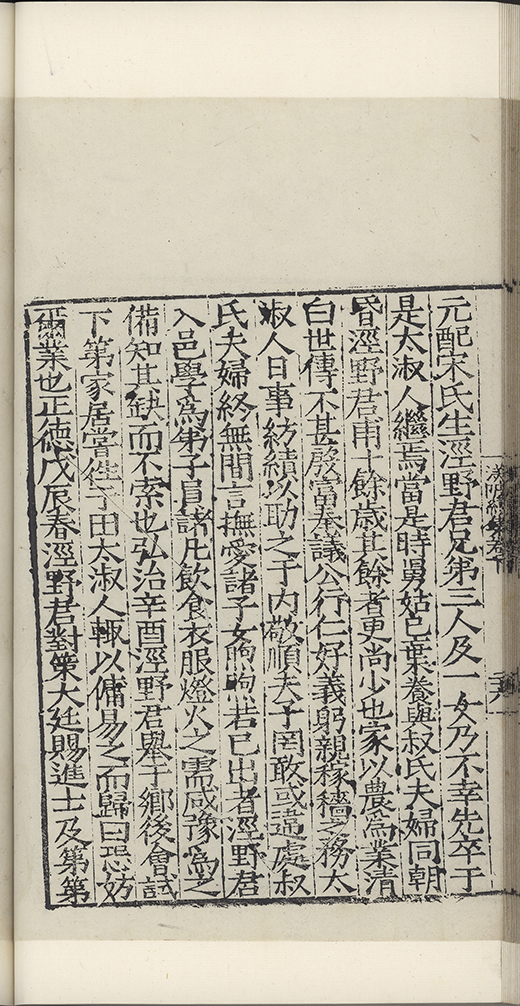 元配宋氏生涇野君兄弟三人及一女乃不幸先卒于
是太淑人繼焉當是時舅姑已葉養與叔氏夫婦同朝
昏涇野君甫十餘歲其餘者更尚少也家以農為業清
白世傳不甚殷富奉議公行仁好義躬親稼穡之務太
淑人日事紡績以助之于内敬順夫子罔敢或違處叔
氏夫婦終無間言撫愛諸子女煦煦若已出者涇野君
入邑學為弟子員諸凡飲食衣服燈火之需咸豫為之
備知其缺而不索也弘治辛酉涇野君舉于鄉後會試
下第家居嘗往于田太淑人輙以傭易之而歸曰恐妨
爾業也正德戊辰春涇野君對策大廷賜進士及第第